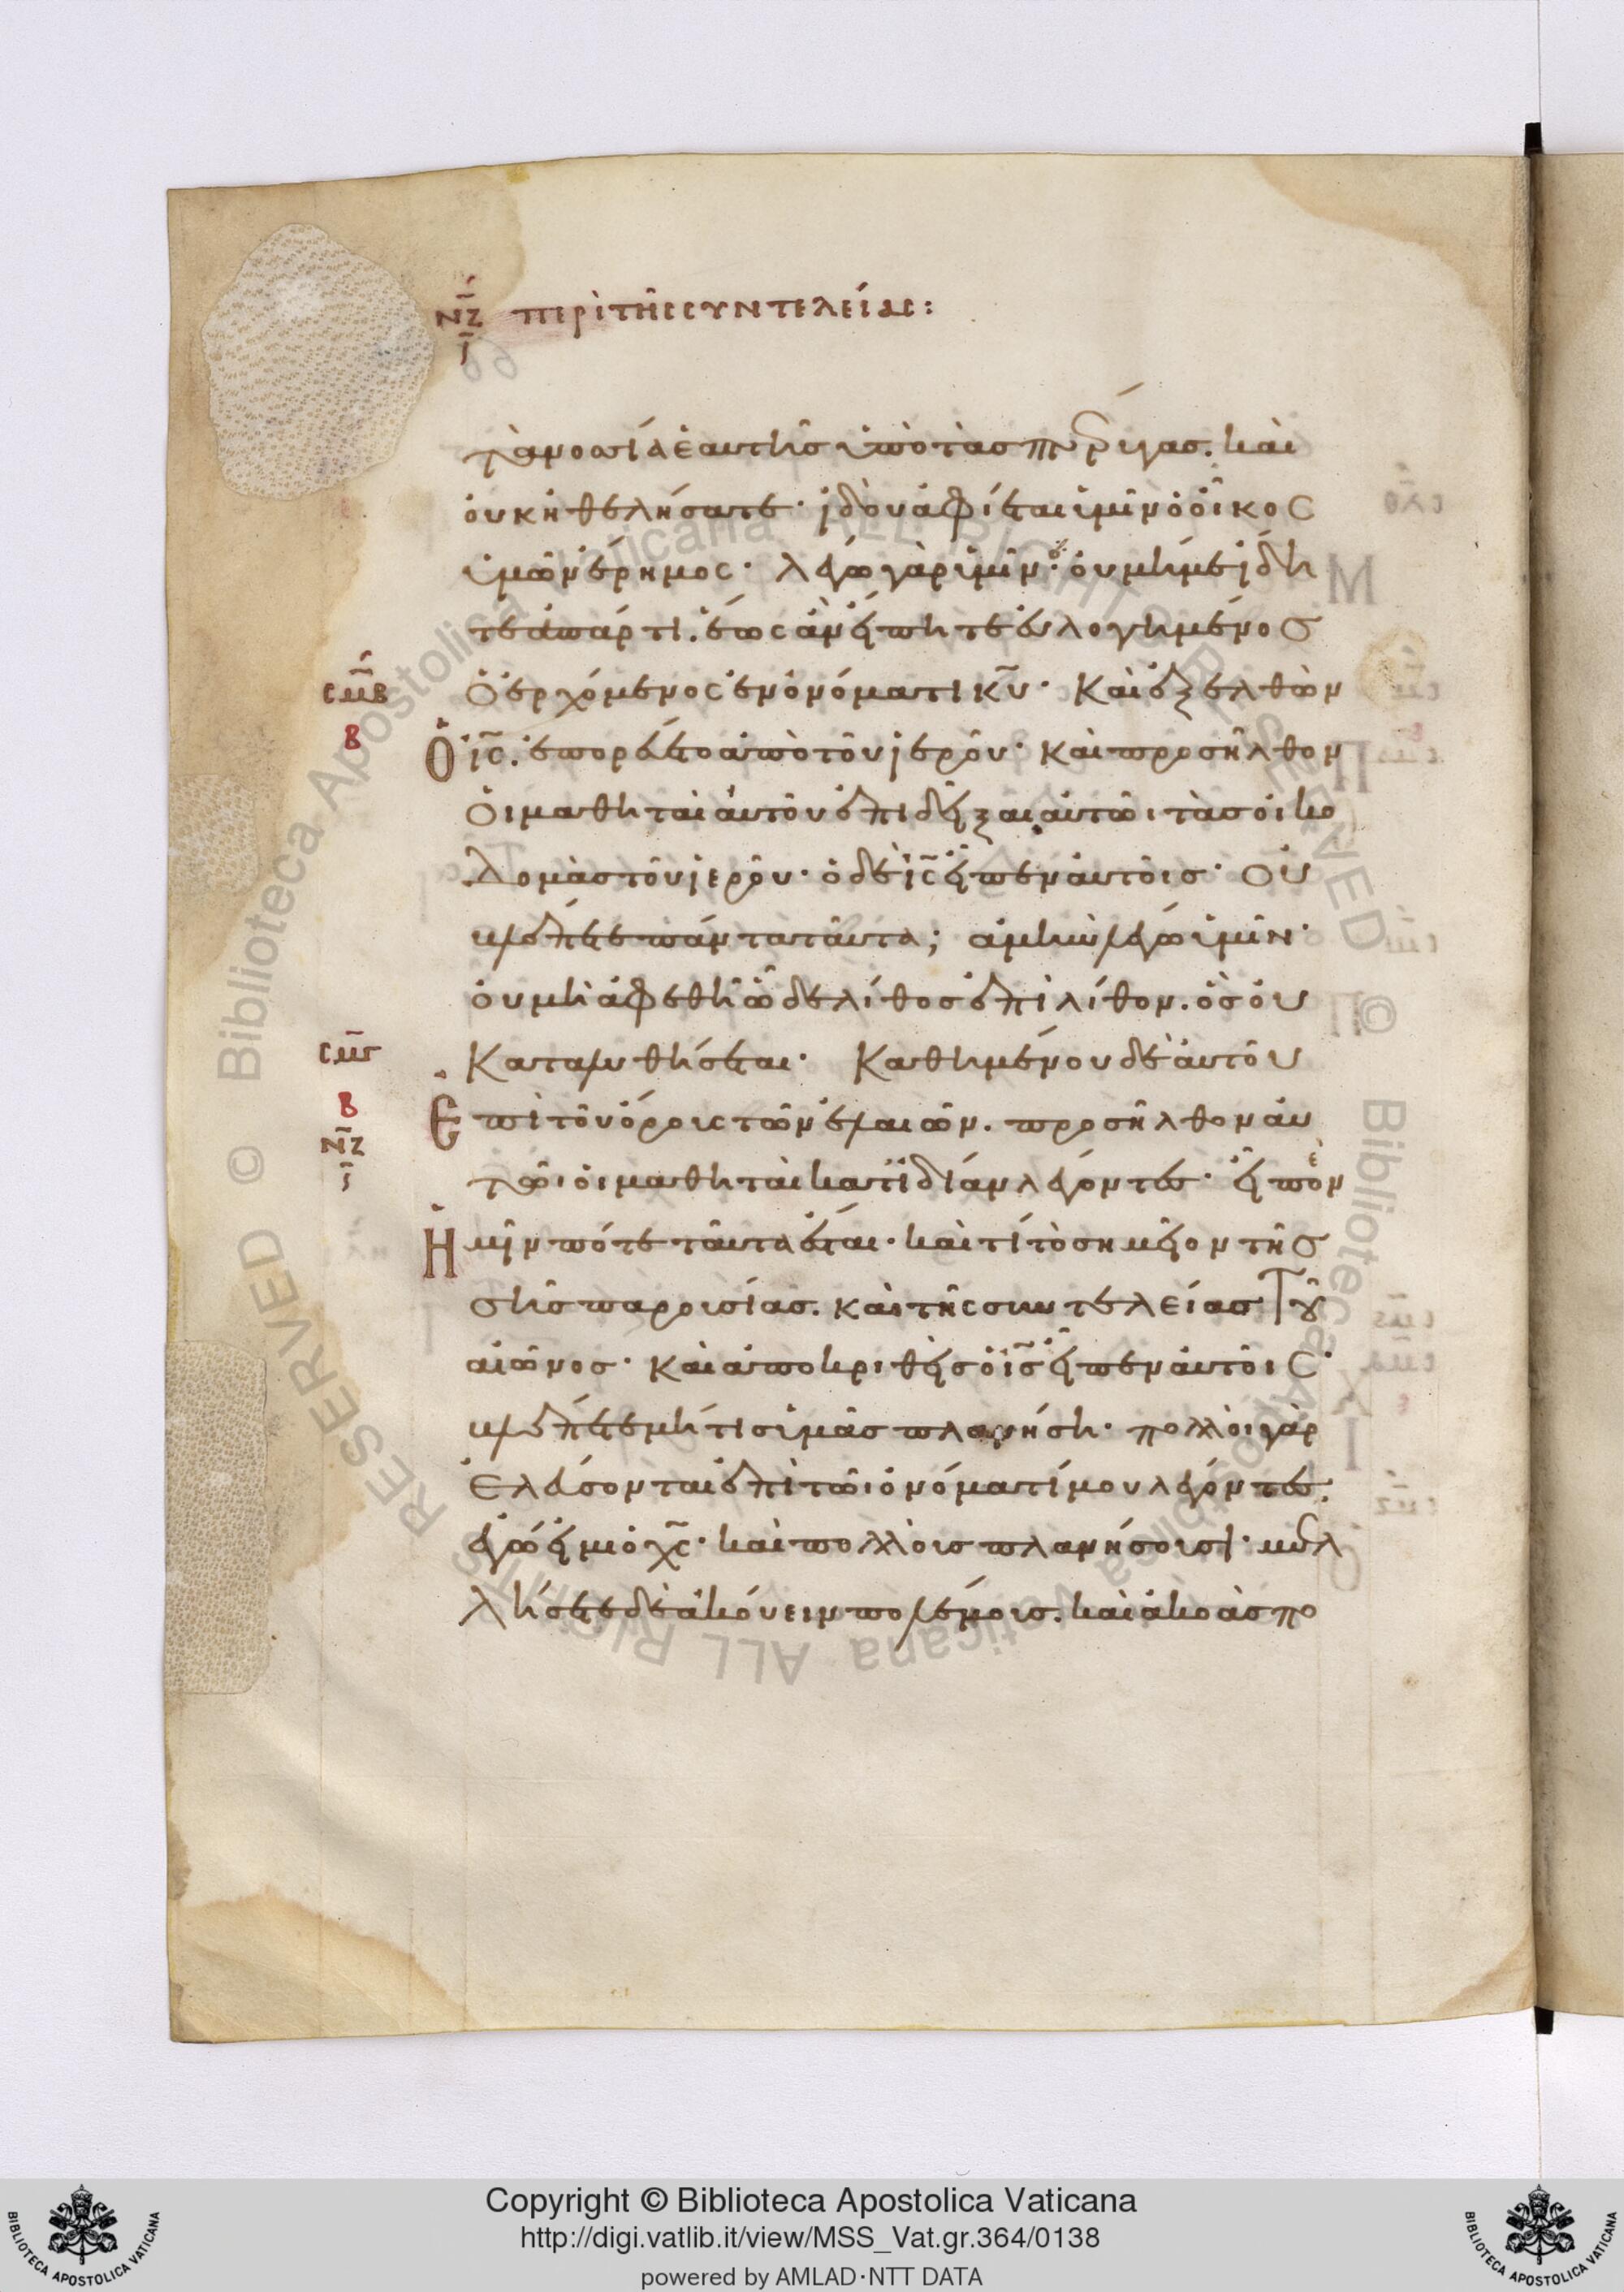 ΝΖ περὶ τῆς συντελείας:
ῑ
τὰ νοσία ἑαυτῆς ὑπὸ τὰς πτέρυγας. καὶ
οὐκ ἠθελήσατε· ἰδοὺ ἀφίεται ὑμῖν ὁ οἶκος
ὑμῶν ἔρημος· λέγω γὰρ ὑμῖν· οὐ μή με ἴδη
τε ἀπάρτι. ἕως ἂν εἴπητε εὐλογημένος
ϹΜΒ
ὁ ἐρχόμενος ἐν ὀνόματι κ̅υ̅· Καὶ ἐξελθὼν
Β
Ὁ ι̅ς̅. ἐπορεύετο ἀπὸ τοῦ ἱεροῦ· καὶ προσῆλθον
ὁι μαθηταὶ αὐτοῦ ἐπιδεῖξαι αὐτῶι τὰς οἰκο
δομὰς τοῦ ἱεροῦ· ὁ δὲ ι̅ς̅ εἶπεν αὐτοῖς· Οὐ
βλέπετε πάντα ταῦτα; ἀμὴν λέγω ὑμῖν·
οὐ μὴ ἀφεθῆ ὧδε λίθος ἐπὶ λίθον. ὃς οὐ
ϹΜΓ
καταλυθήσεται· Καθημένου δὲ αὐτοῦ
Β
Ἐπὶ τοῦ ὄρους τῶν ἐλαιῶν. προσῆλθον αὐ
ΝΖ
ῑ
τῶι ὁι μαθηταὶ κατϊδίαν λέγοντες· εἶπὸν
Ἡμῖν πότε ταῦτα ἔσται· καὶ τί τὸ σημεῖον τῆς
σῆς παρουσίας. καὶ τῆς συντελείας τοῦ
αἰῶνος· Καὶ ἀποκριθεὶς ὁ ι̅ς̅ εἶπεν αὐτοῖς·
βλέπετε μή τις ὑμᾶς πλανήση· πολλοὶ γὰρ
ἐλεύσονται ἐπὶ τῶι ὀνόματί μου λέγοντες.
ἐγώ εἰμι ὁ χ̅ς̅· καὶ πολλοὺς πλανήσουσι· μελ
λήσετε δὲ ἀκούειν πολέμους. καὶ ἀκοὰς πο
Copyright © Biblioteca Apostolica Vaticana
http://digi.vatlib.it/view/MSS_Vat.gr.364/0138
powered by AMLAD·NTT DATA
BIBLIOTECA APOSTOLICA VATICANA
BIBLIOTECA APOSTOLICA VATICANA